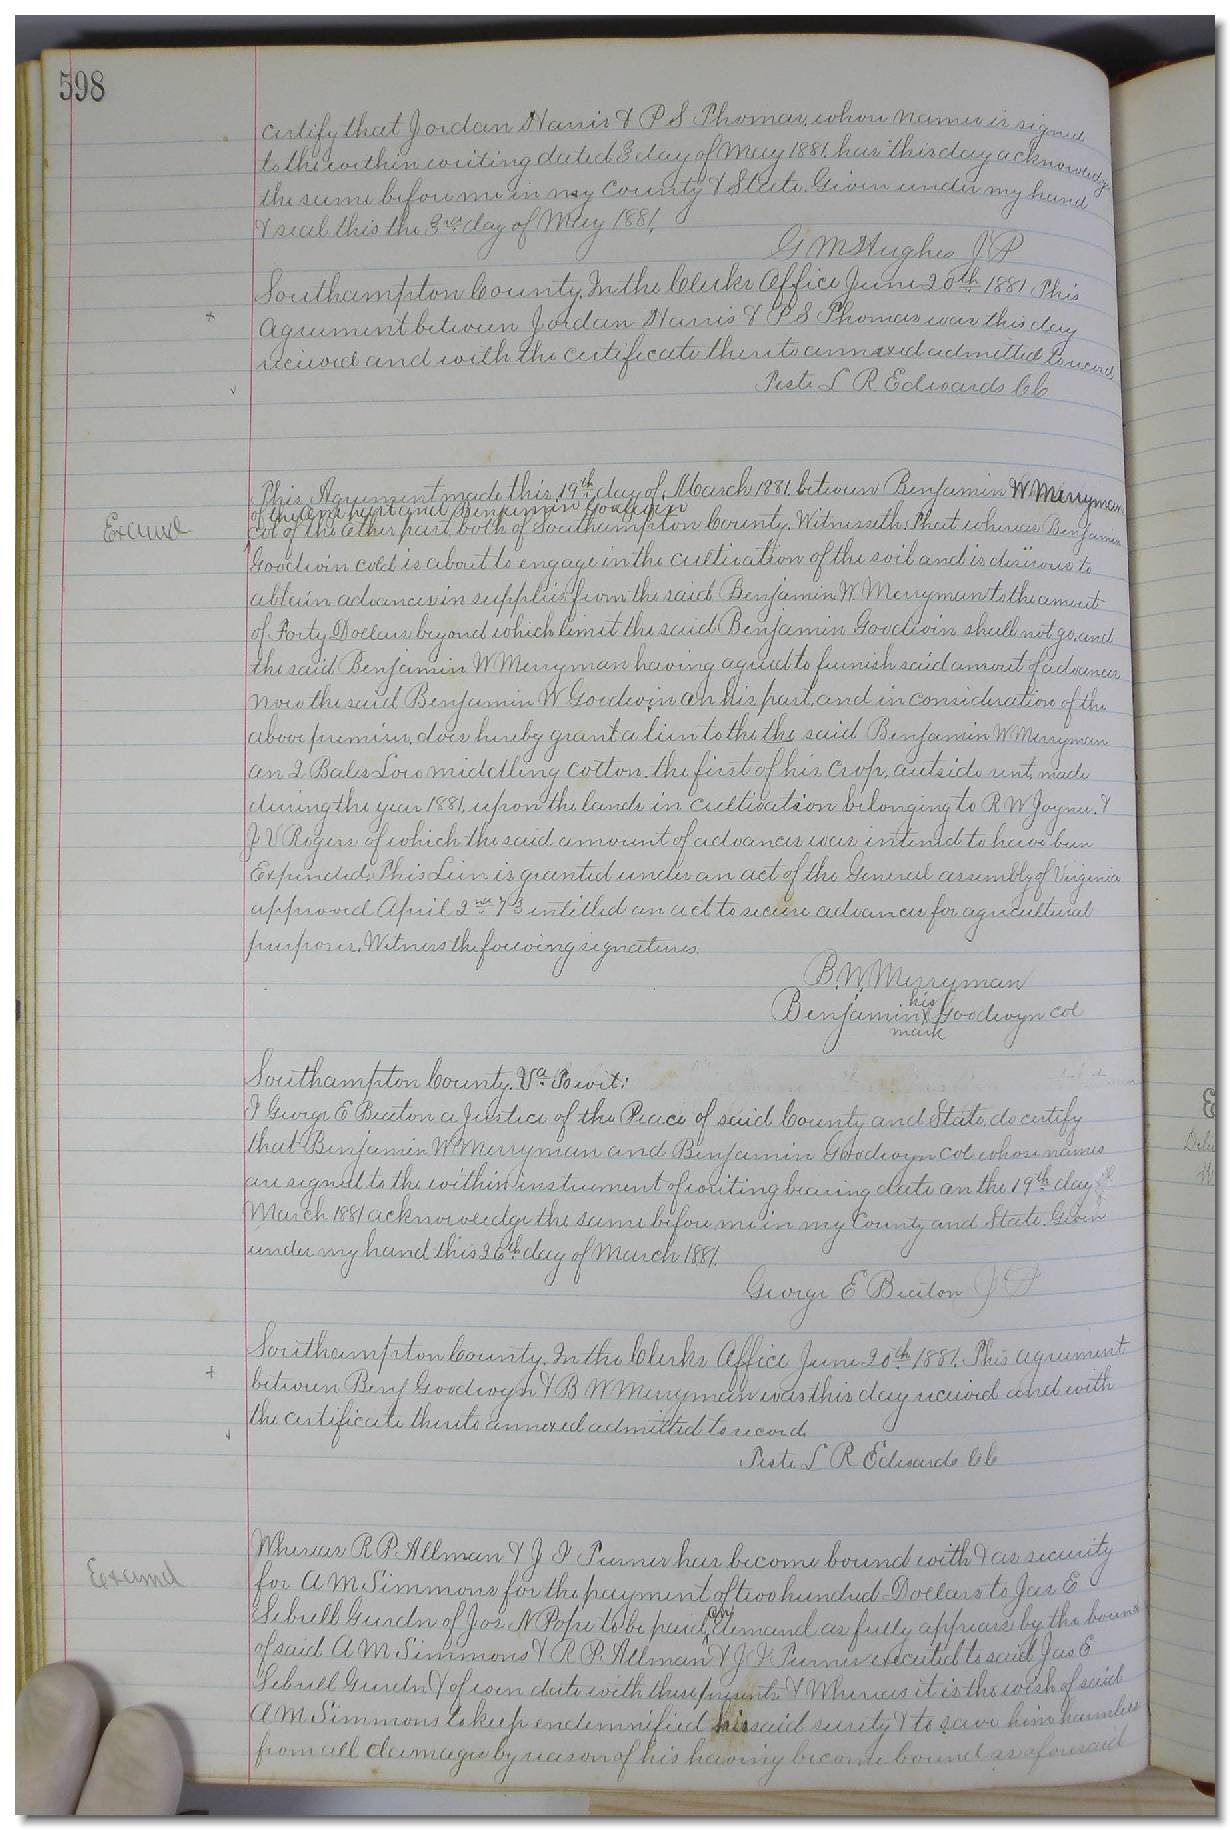 598
certify that Jordan Harris & P S Thomas, whose names is signed
to the within writing dated 3 day of May 1881. has this day acknowledge
the same before me in my County & State. Given under my hand
& seal this the 3rd day of May 1881.
G M Hughes J P
Southampton County. In the Clerks Office June 20th 1881 This
agreement between Jordan Harris & P S Thomas was this day
received and with the certificate thereto annexed admitted to record
Teste L R Edwards CC
This Agreement made this 19th day of March 1881. between Benjamin W Merryman
of the one part and Benjamin Goodwin
Examd
col of the other part, both of Southampton County. Witnesseth: That whereas Benjamin
Goodwin cold is about to engage in the cultivation of the soil and is desirous to
obtain advances in supplies from the said Benjamin W. Merryman to the amount
of Forty Dollars beyond which limit the said Benjamin Goodwin shall not go, and
the said Benjamin W Merryman having agreed to furnish said amount of advances
now the said Benjamin W Goodwin on his part, and in consideration of the
above premises, does hereby grant a lien to the the said Benjamin W Merryman
on 2 Bales Low middling cotton. the first of his crop, outside rent, made
during the year 1881, upon the lands in cultivation belonging to R W Joyner. &
J V Rogers of which the said amount of advances was intend to have been
Expended. This Lien is granted under an act of the General assembly of Virginia
approved April 2nd 73 intitled an act to secure advances for agricultural
purposes. Witness the following signatures.
B. W. Merryman
his
Benjamin X Goodwyn col
mark
Southampton County. Va. Towit:
I George E Beaton a Justice of the Peace of said County and State, do certify
that Benjamin W Merryman and Benjamin Goodwyn col whose names
are signed to the within instrument of writing bearing date on the 19th day of
March 1881 acknowledge the same before me in my County and State. Given
under my hand this 26th day of March 1881.
George E Beaton J P
Southampton County. In the Clerks Office June 20th 1881. This agreement
between Benj Goodwyn & B W Merryman was this day received and with
the certificate thereto annexed admitted to record.
Teste L R Edwards CC
Whereas R P. Allman & J F Turner has become bound with & as security
Examd
for A M Simmons for the payment of two hundred Dollars to Jas E
Sebrell Gurdn of Jos N Pope to be paid on demand as fully appears by the bond
of said A M Simmons & R P. Allman & J F Turner executed to said Jas E
Sebrell Gurdn & of even date with these presents & Whereas it is the wish of said
A M Simmons to keep endemnified his said surety & to save him harmless
from all damage by reason of his having become bound as aforesaid